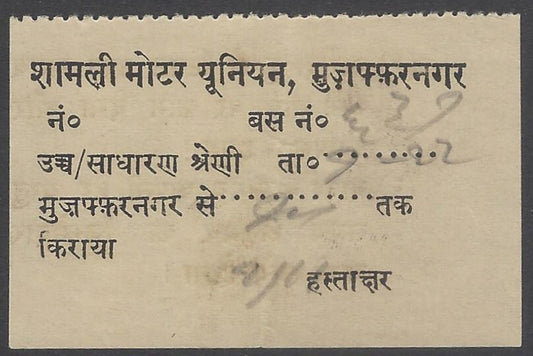 शामली मोटर यूनियन, मुज़फ्फ़रनगर
नं० बस नं०
उच्च/साधारण श्रेणी ता०............
मुज़फ्फ़रनगर से................तक
किराया
हस्ताक्षर